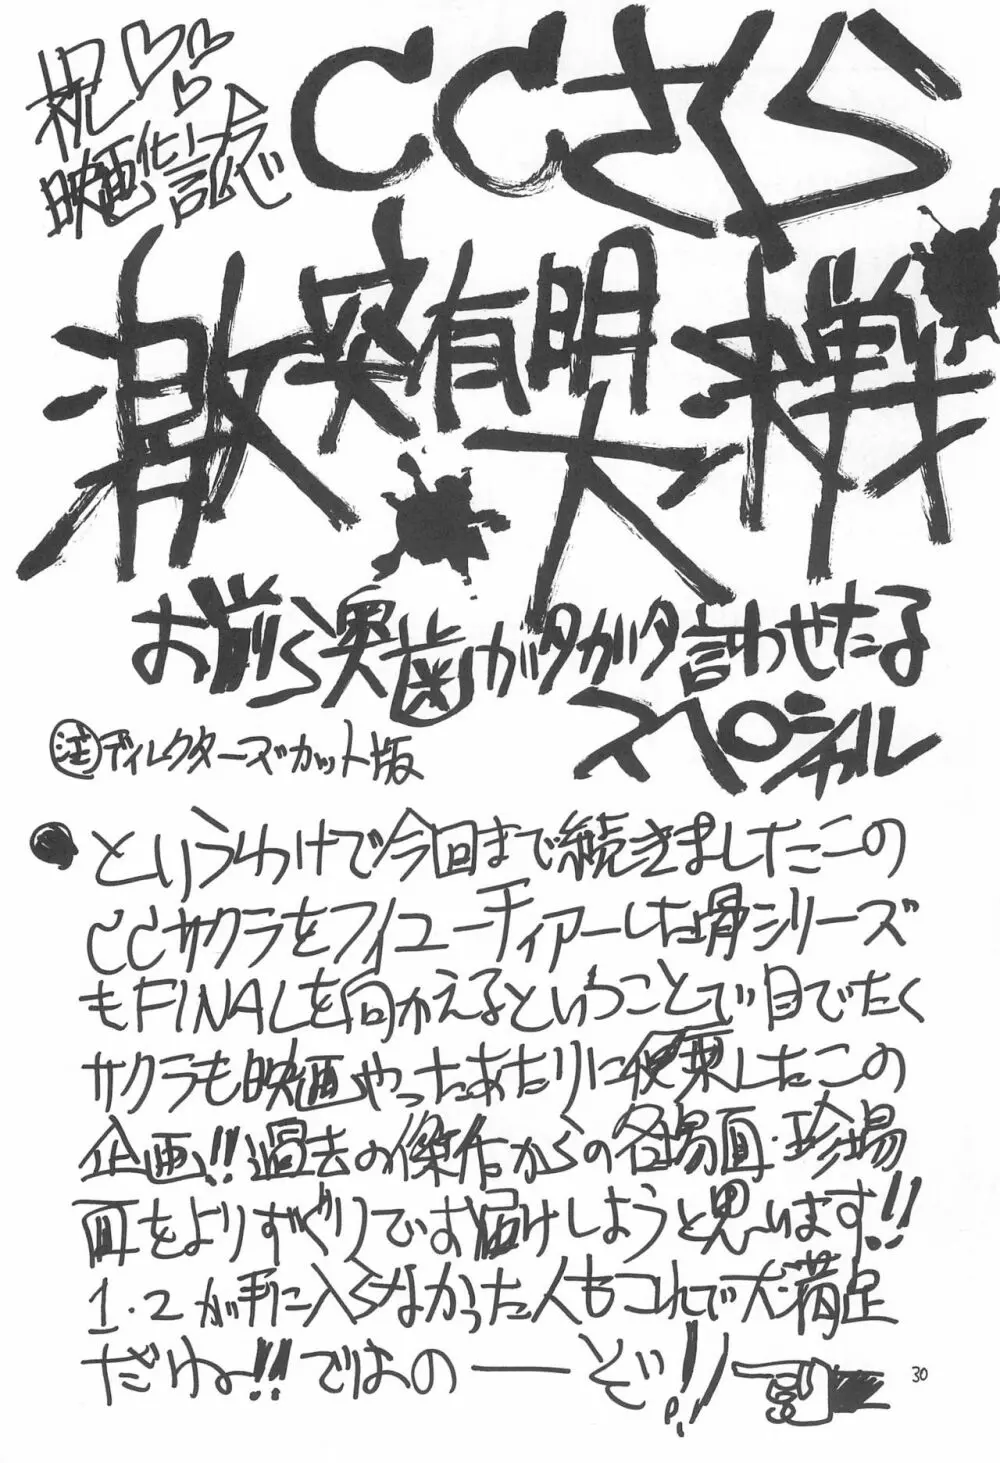 祝♡♡♡
映画化!!
CCさくら
激突有明
大決戦
お前ら奥歯ガタガタ言わせたる
スペシャル
注ディレクターズカット版
●というわけで今回まで続きましたこの
CCサクラをフィーチャーした骨シリーズ
もFINALを向かえるということで目でたく
サクラも映画やったあたりに便乗したこの
企画!!過去の傑作からの各場面・珍場
面をよりすぐりでお届けしようと思います!!
1・2が手に入らなかった人もこれで大満足
だね!!ではの——ぞ!!
30